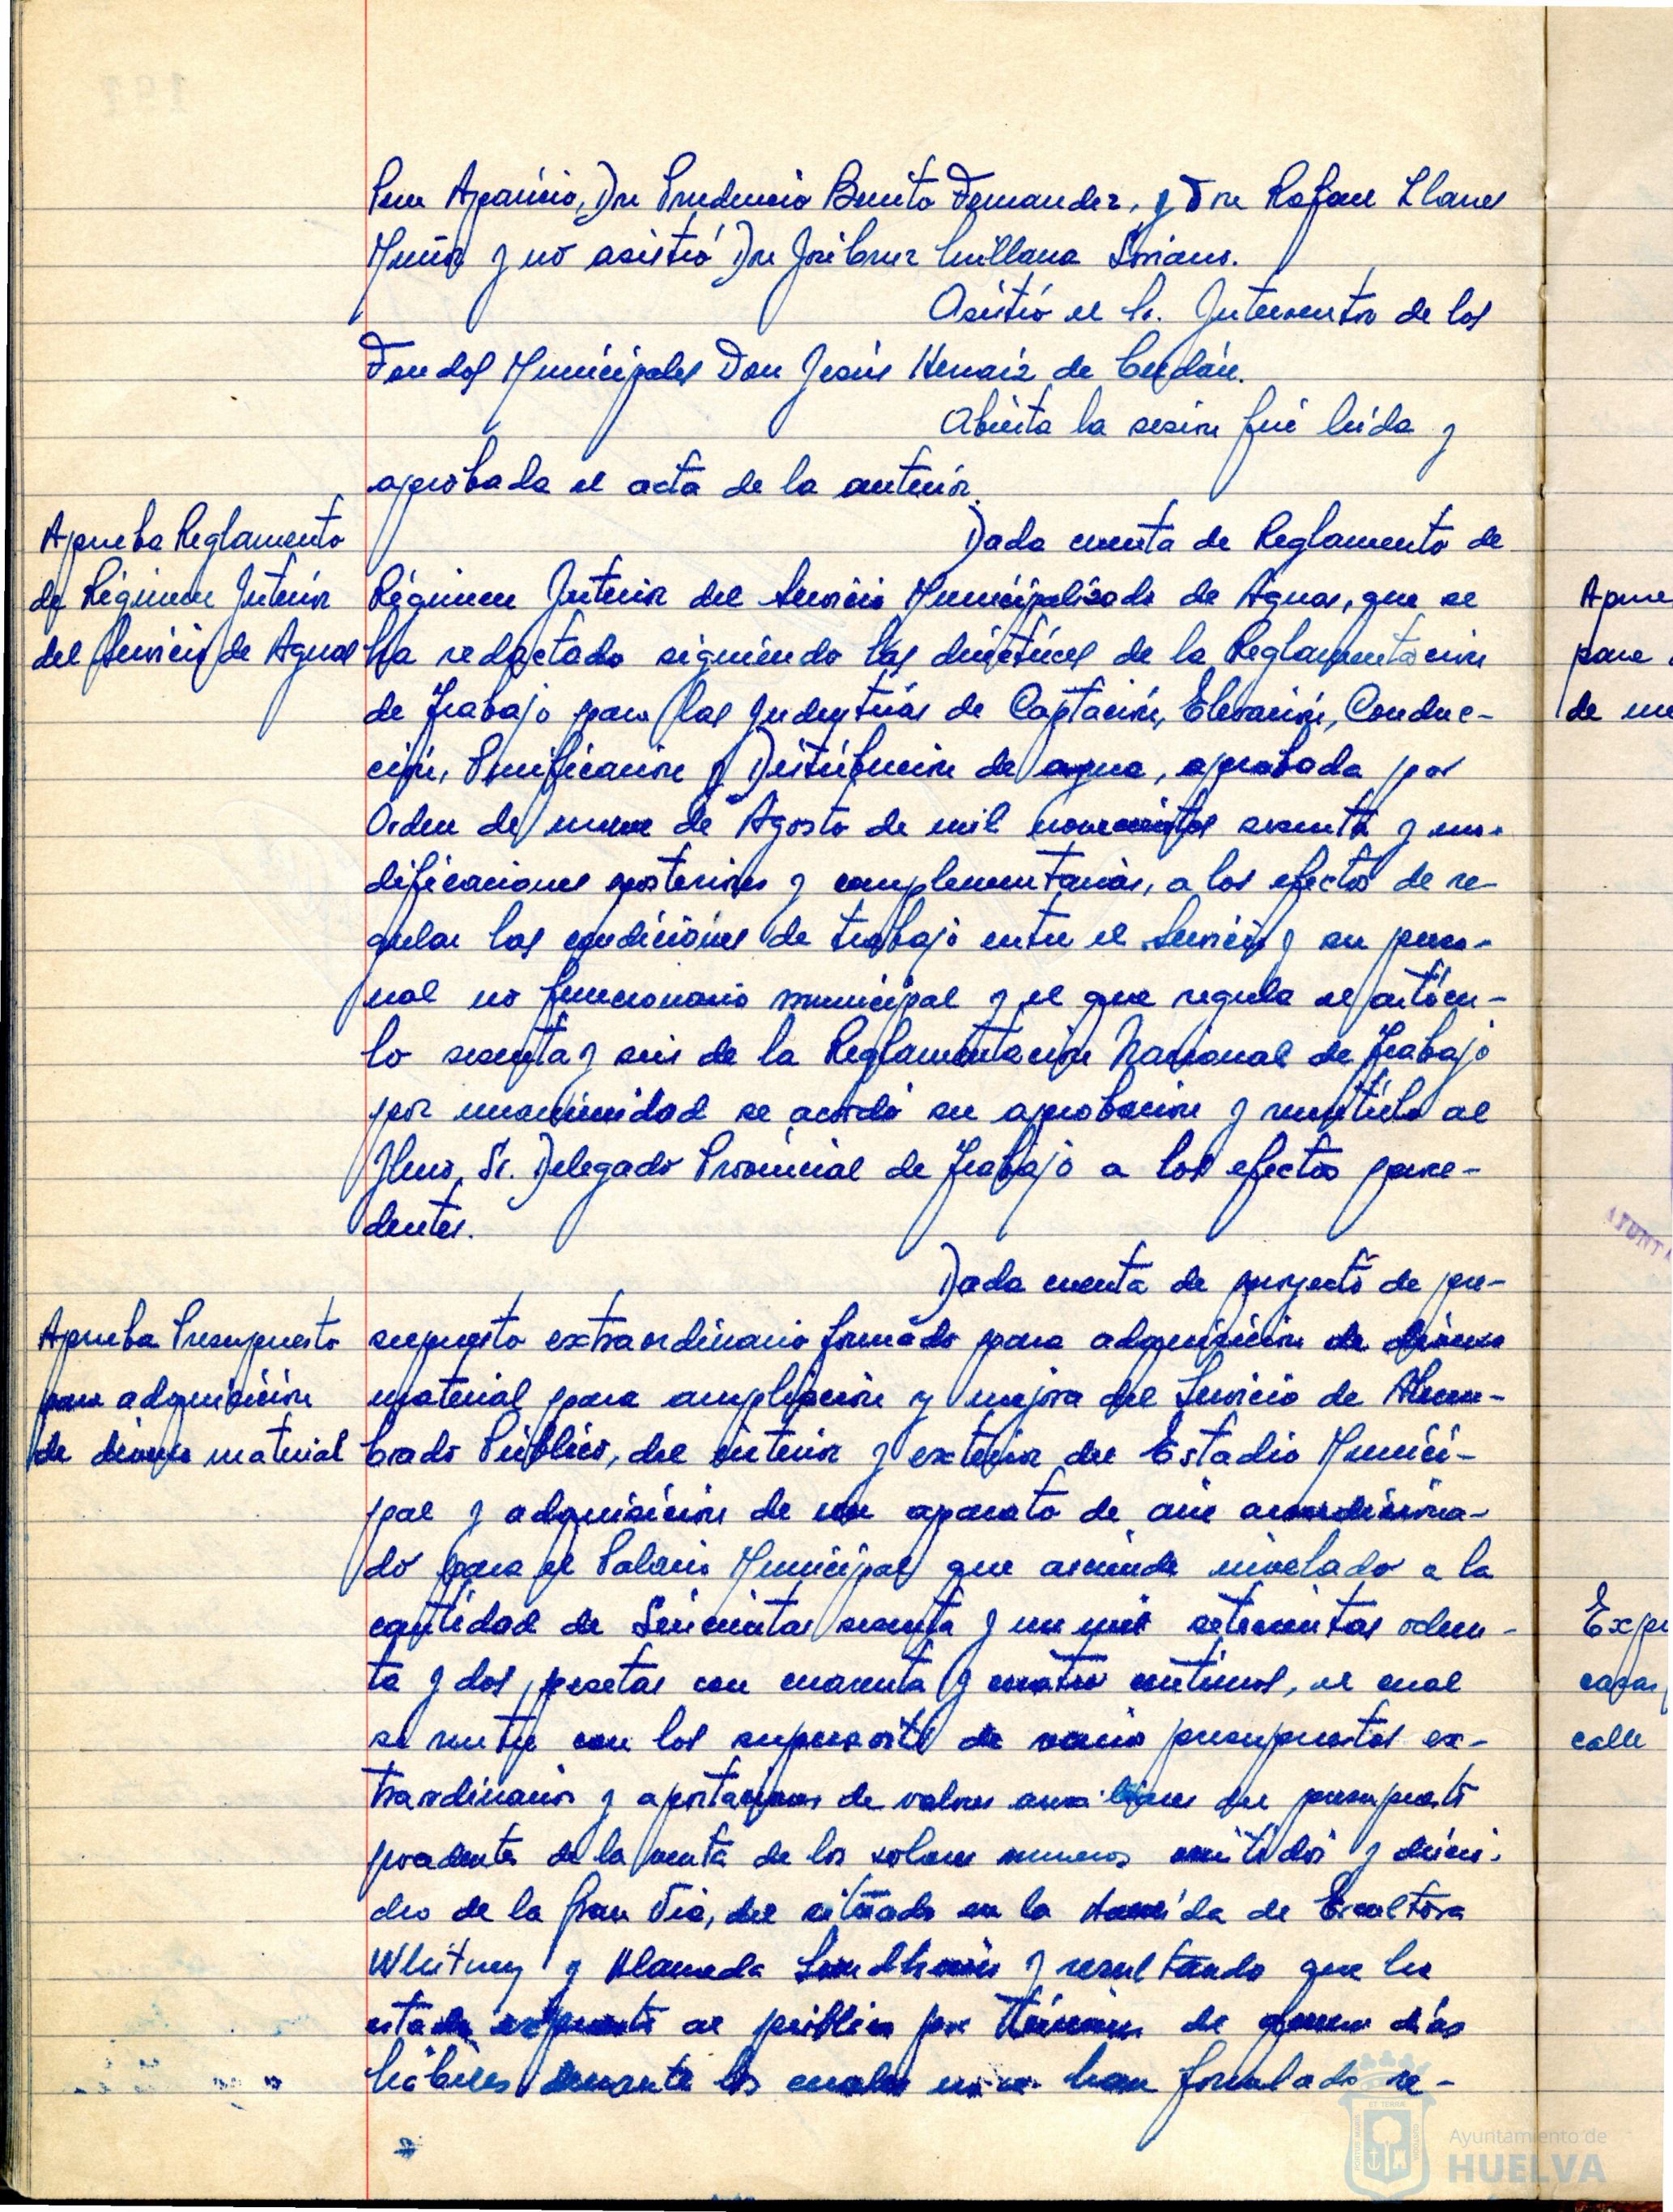 Aparicio, Don Prudencio Benito Fernandez, y Don Rafael Llanes
Muñoz y no asistió Don José Cruz Quillana Soriano.
Asistió el Sr. Interventor de los
Fondos Municipales Don Jesús Hernáiz de
Abierta la sesión fué leída y
aprobada el acta de la anterior.
Aprueba Reglamento
de Régimen Interior
del Servicio de Aguas
Dada cuenta de Reglamento de
Régimen Interior del Servicio Municipalizado de Aguas, que se
ha redactado siguiendo las directrices de la Reglamentación
de Trabajo para las Industrias de Captación, Elevación, Conduc-
ción, Purificación y Distribución de agua, aprobada por
Orden de nueve de Agosto de mil novecientos sesenta y mo-
dificaciones posteriores y complementarias, a los efectos de re-
gular las condiciones de trabajo entre el Servicio y su perso-
nal no funcionario municipal y el que regula el artícu-
lo sesenta y seis de la Reglamentación Nacional de Trabajo
por unanimidad se acordó su aprobación y remitirlo al
Ilmo. Sr. Delegado Provincial de Trabajo a los efectos proce-
dentes.
Aprueba Presupuesto
para adquisición
de diverso material
Dada cuenta de proyecto de pre-
supuesto extraordinario formado para adquisición de diverso
material para ampliación y mejora del Servicio de Alum-
brado Público, del interior y exterior del Estadio Munici-
pal y adquisición de un aparato de aire acondiciona-
do para el Palacio Municipal que asciende nivelado a la
cantidad de Seiscientas sesenta y un mil setecientas ochen-
ta y dos pesetas con cuarenta y cuatro centimos, el cual
se nutre con los superavits de varios presupuestos ex-
traordinarios y aportaciones de valores auxiliares del presupuesto
procedentes de la venta de los solares numeros
de la Gran Via, del situado en la Avenida de Escultora
Whitney y Alameda Sundheim y resultando que ha
estado expuesto al publico por término de quince días
hábiles durante los cuales no se han formulado re-
Apru
para
de
Expe
casas
calle
AYUNTA
Ayuntamiento de
HUELVA